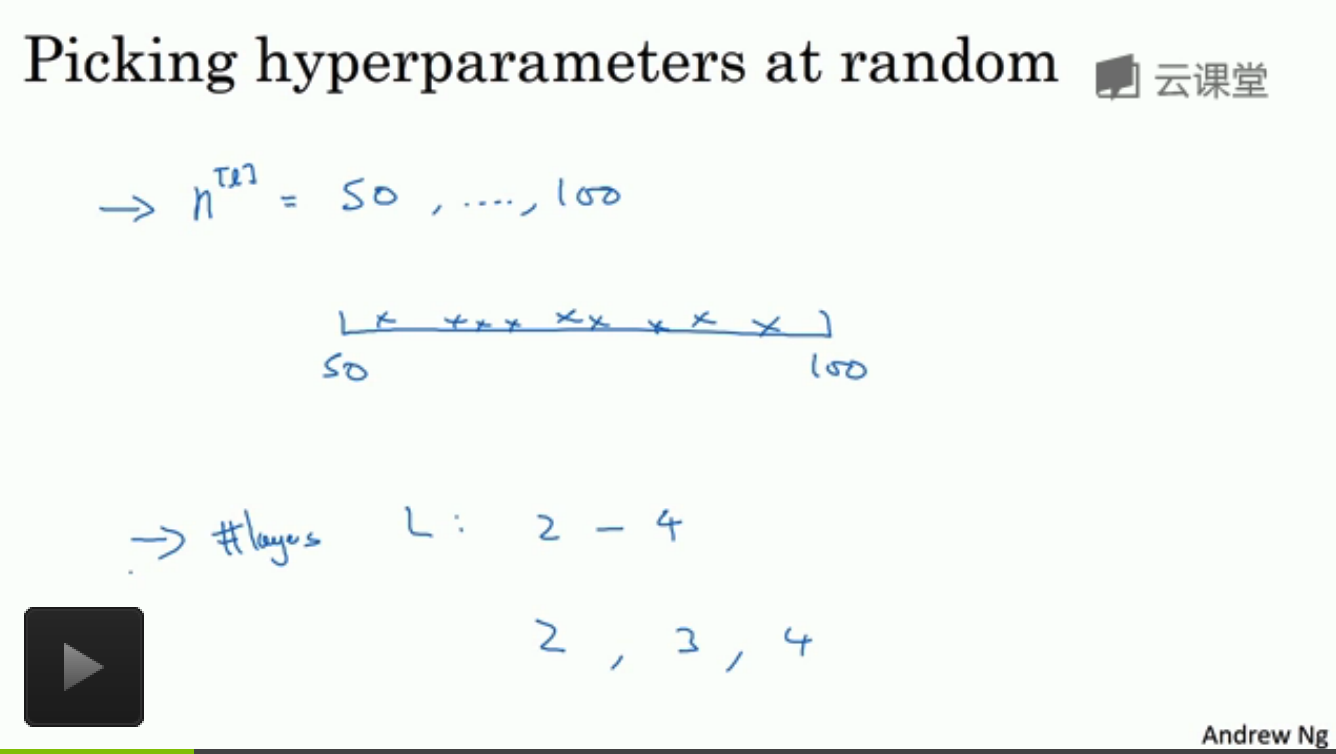 Picking hyperparameters at random
云课堂
→ n[l] = 50 , ...., 100
50 100
→ #layers L : 2 - 4
2 , 3 , 4
Andrew Ng